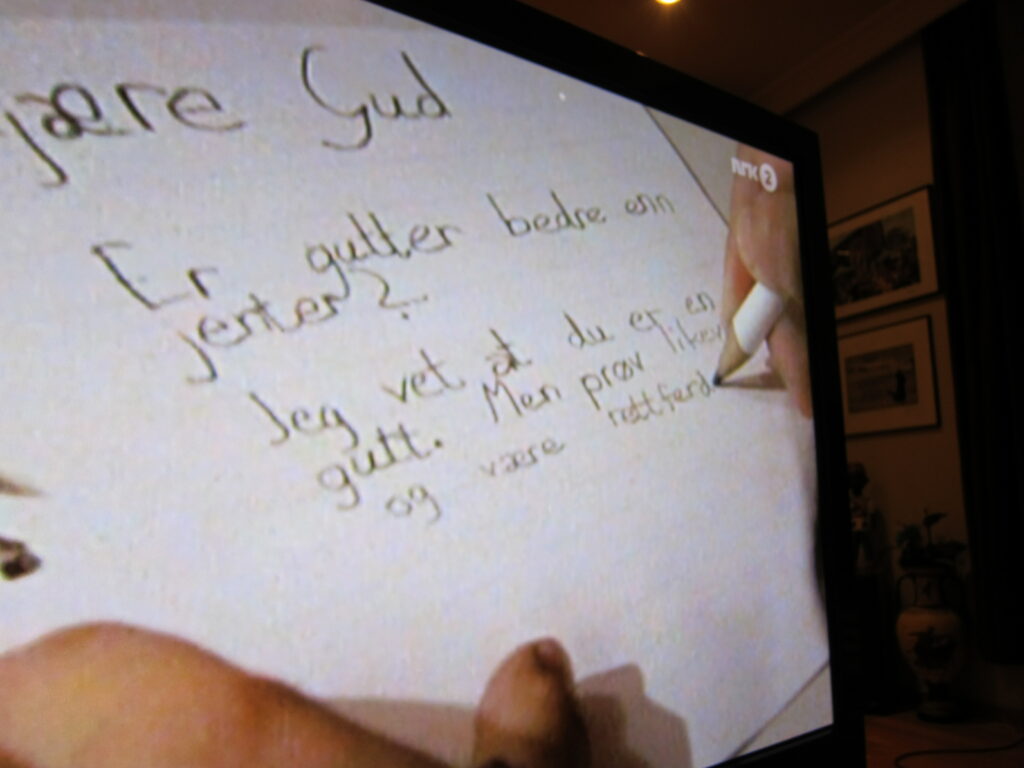 jære Gud
nrk 2
Er gutter bedre enn
jenter?
Jeg vet at du er en
gutt. Men prøv likev
og være rettferd